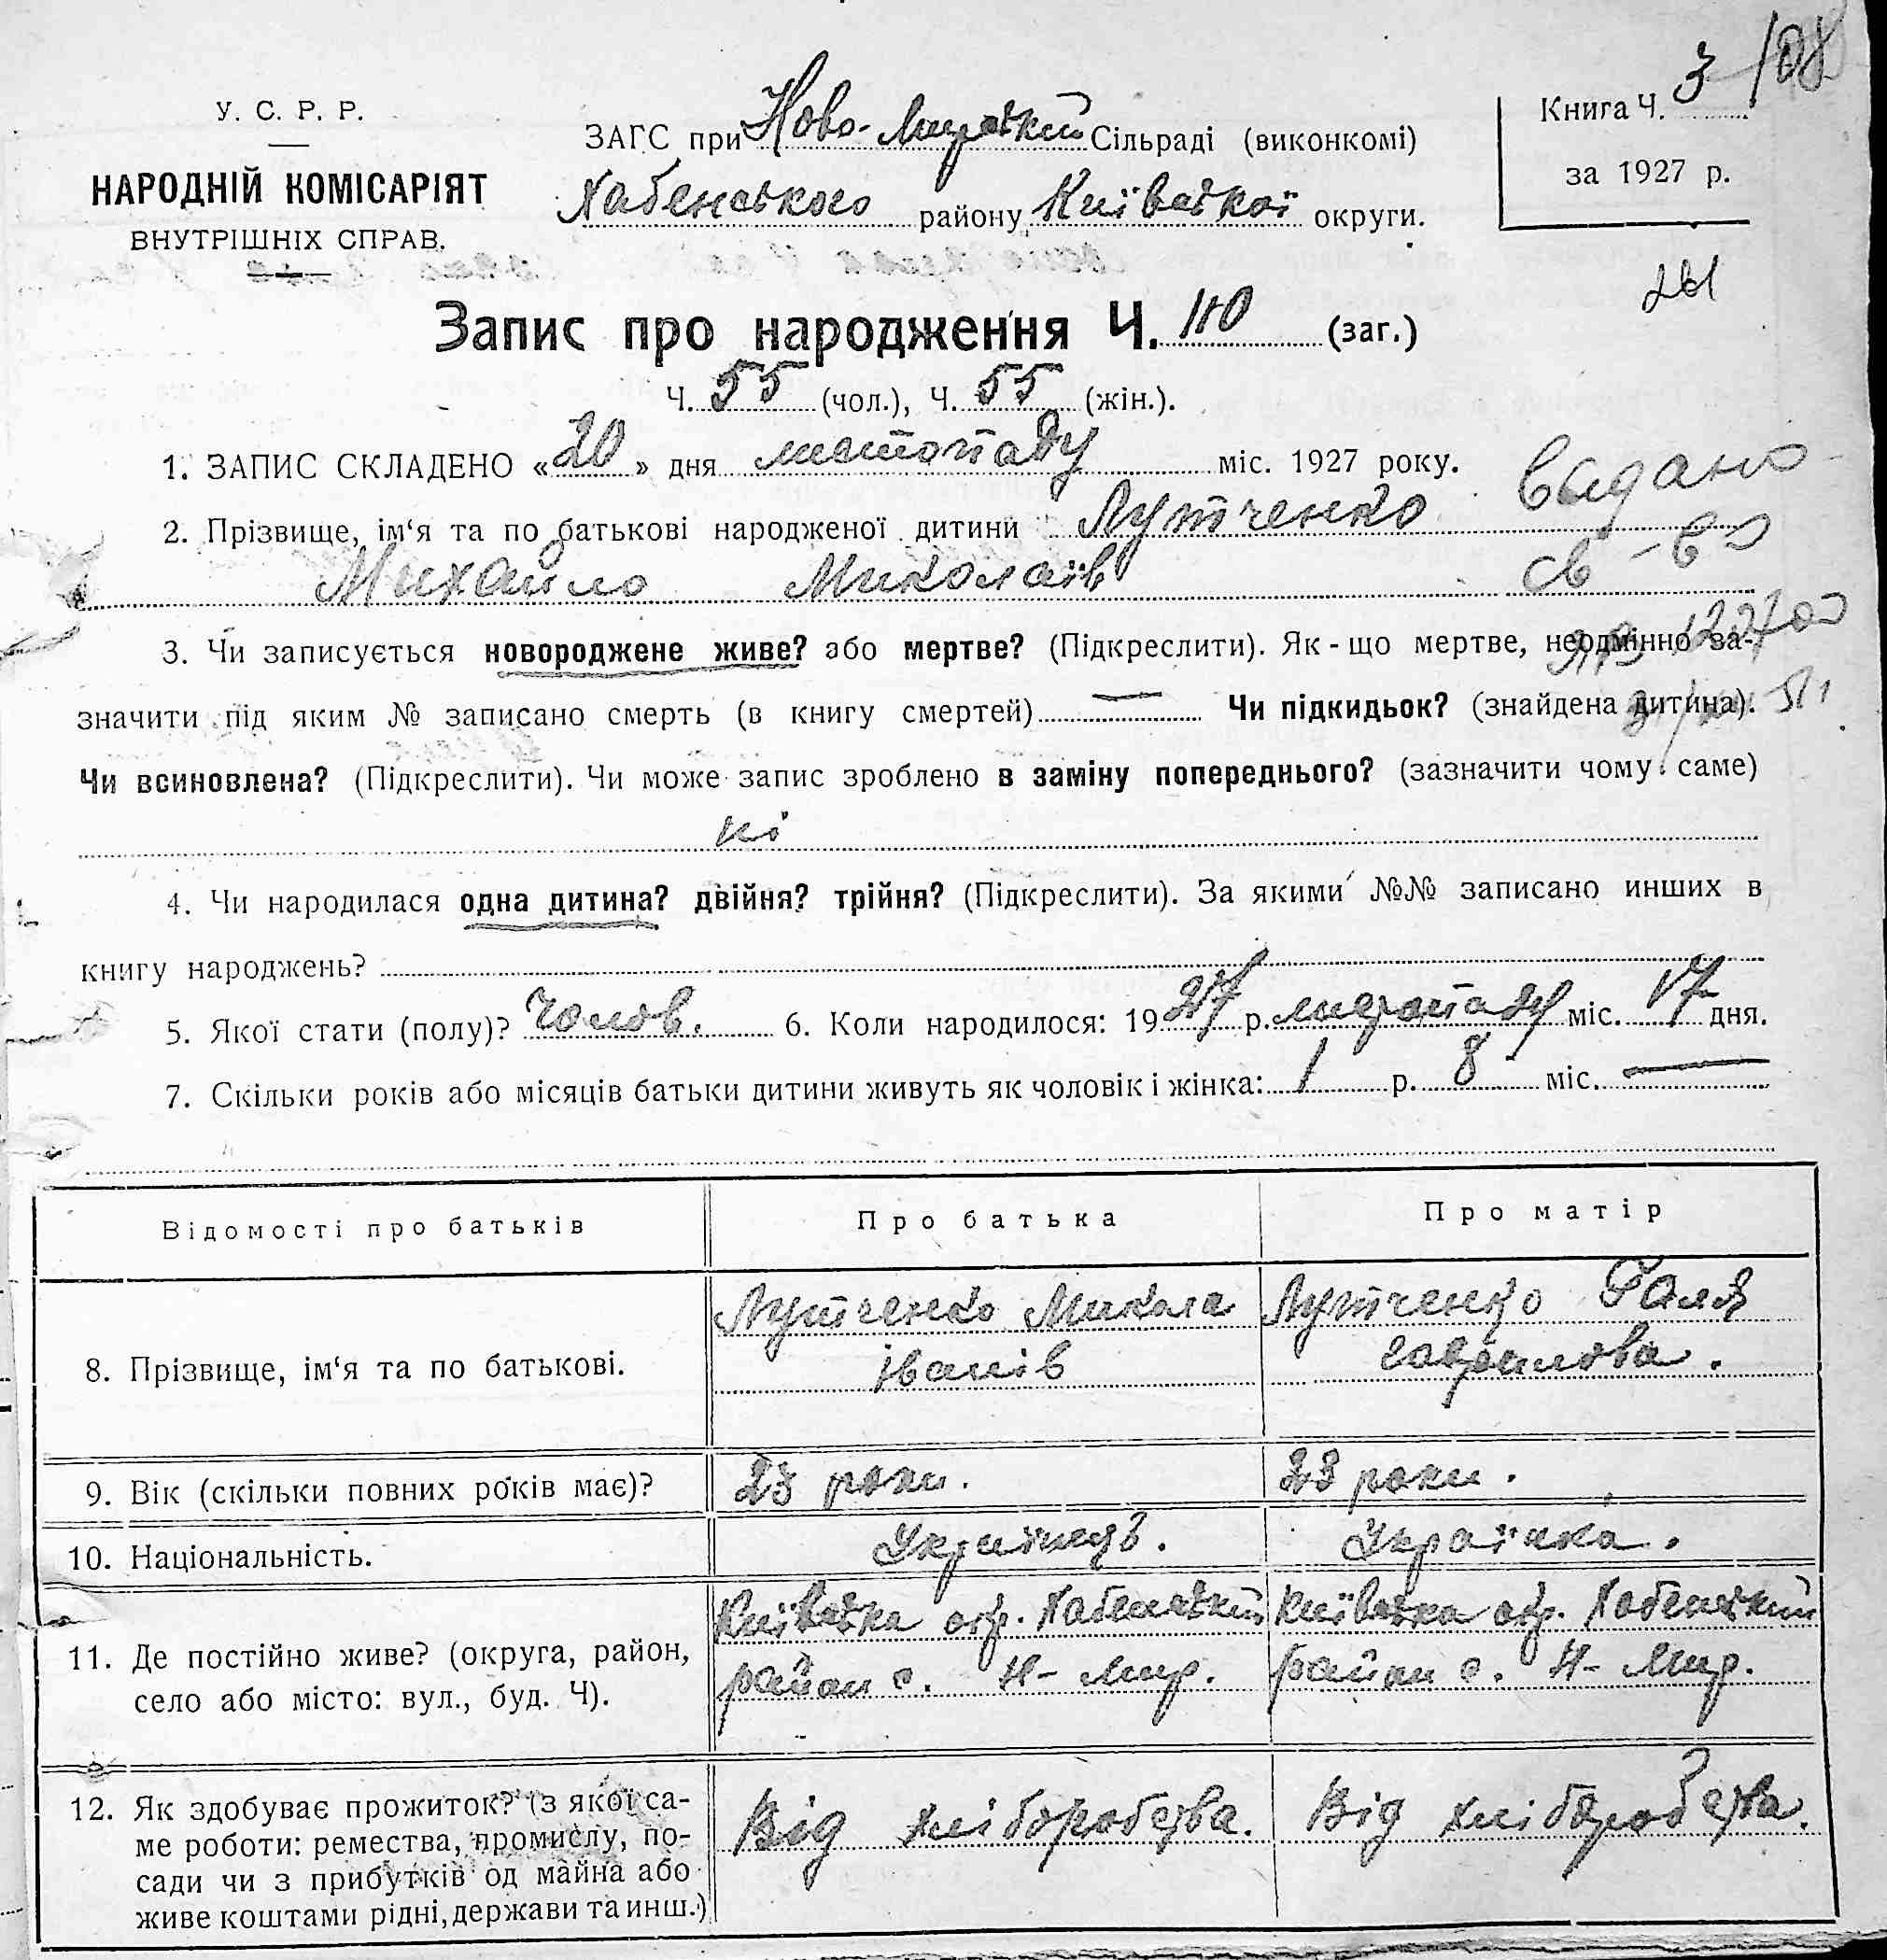 3 108
У. С. Р. Р.
НАРОДНІЙ КОМІСАРІЯТ
ВНУТРІШНІХ СПРАВ.
ЗАГС при Ново-Мирський Сільраді (виконкомі)
Хабенського району Київської округи.
Книга Ч.
за 1927 р.
Запис про народження Ч. 110 (заг.)
Ч. 55 (чол.), Ч. 55 (жін.).
1. ЗАПИС СКЛАДЕНО «20» дня листопаду міс. 1927 року.
2. Прізвище, ім‘я та по батькові народженої дитини Лутченко
Михайло Миколаїв
видано
св-во
3. Чи записується новороджене живе? або мертве? (Підкреслити). Як-що мертве, неодмінно за-
значити під яким № записано смерть (в книгу смертей) — Чи підкидьок? (знайдена дитина).
Чи всиновлена? (Підкреслити). Чи може запис зроблено в заміну попереднього? (зазначити чому саме)
ні
4. Чи народилася одна дитина? двійня? трійня? (Підкреслити). За якими №№ записано инших в
книгу народжень?
5. Якої стати (полу)? чолов. 6. Коли народилося: 1927 р. листопаду міс. 17 дня.
7. Скільки років або місяців батьки дитини живуть як чоловік і жінка: 1 р. 8 міс. —
Відомості про батьків Про батька Про матір
8. Прізвище, ім‘я та по батькові.
Лутченко Микола
Іванів
Лутченко Галя
Гаврилова.
9. Вік (скільки повних років має)? 23 роки. 23 роки.
10. Національність. Українець. Українка.
11. Де постійно живе? (округа, район,
село або місто: вул., буд. Ч).
Київська окр. Хабенський
район с. Н-Мир.
Київська окр. Хабенський
район с. Н-Мир.
12. Як здобуває прожиток? (з якої са-
ме роботи: ремества, промислу, по-
сади чи з прибутків од майна або
живе коштами рідні, держави та инш.)
Від хліборобства.
Від хліборобства.